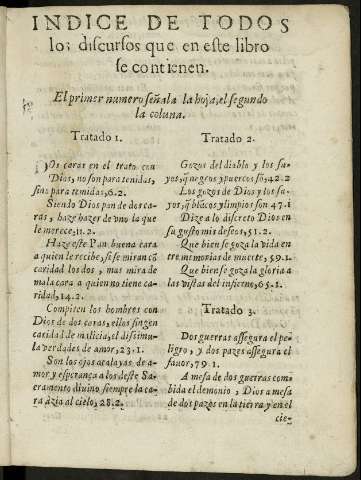 INDICE DE TODOS
los discursos que en este libro
se contienen.
El primer numero señala la hoja, el segundo
la coluna.
Tratado 1.
Dos caras en el trato con
Dios, no son para tenidas,
sino para temidas, 6.2.
Siendo Dios pan de dos ca-
ras, haze hazer de vno la que
le merece, 11.2.
Haze este Pan buena cara
a quien le recibe, si se miran cō
caridad los dos, mas mira de
mala cara a quien no tiene ca-
ridad, 14.2.
Compiten los hombres con
Dios de dos caras, ellos fingen
caridad de malicia, el dissimu-
la verdades de amor, 23.1.
Son los ojos atalayas de a-
mor y esperança a los deste Sa-
cramento diuino siempre la ca-
ra àzia al cielo, 28.2.
Tratado 2.
Gozos del diablo y los su-
yos, q̃ negros y puercos sō, 42.2
Los gozos de Dios y los su-
yos, q̃ blācos y limpios son 47.1
Dize a lo discreto Dios en
su gusto mis deseos, 51.2.
Que bien se goza la vida en
tre memorias de muerte, 59.1.
Que bien se goza la gloria a
las vistas del infierno, 65.1.
Tratado 3.
Dos guerras assegura el pe-
ligro, y dos pazes assegura el
fauor, 79.1
A mesa de dos guerras com-
bida el demonio, Dios a mesa
de dos pazes en la tierra y en el
cie-